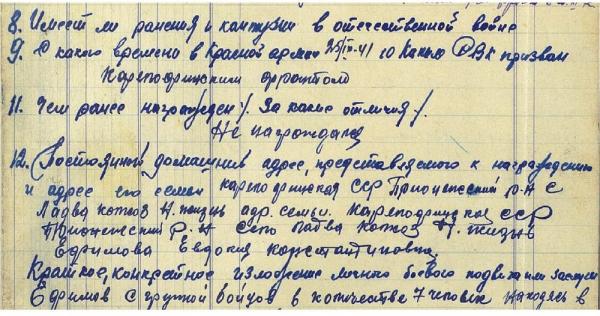 8. Имеет ли ранения и контузии в отечественной войне
9. С какого времени в Красной армии 10 Каким РВК призван
Карелофинским фронтом
11. Чем ранее награжден /. За какие отличия /.
Не награждался
12. Постоянный домашний адрес, представляемого к награждению
и адрес его семьи Карелофинская ССР Прионежский р-н С
Ладва колхоз Н. жизнь адр. семьи. Карелофинская ССР
Прионежский Р-Н Село Ладва колхоз Н. жизнь
Ефимова Евдокия Константиновна
Краткое, конкретное изложение личного боевого подвига или заслуг
Ефимов с группой бойцов в количестве 7 человек находясь в